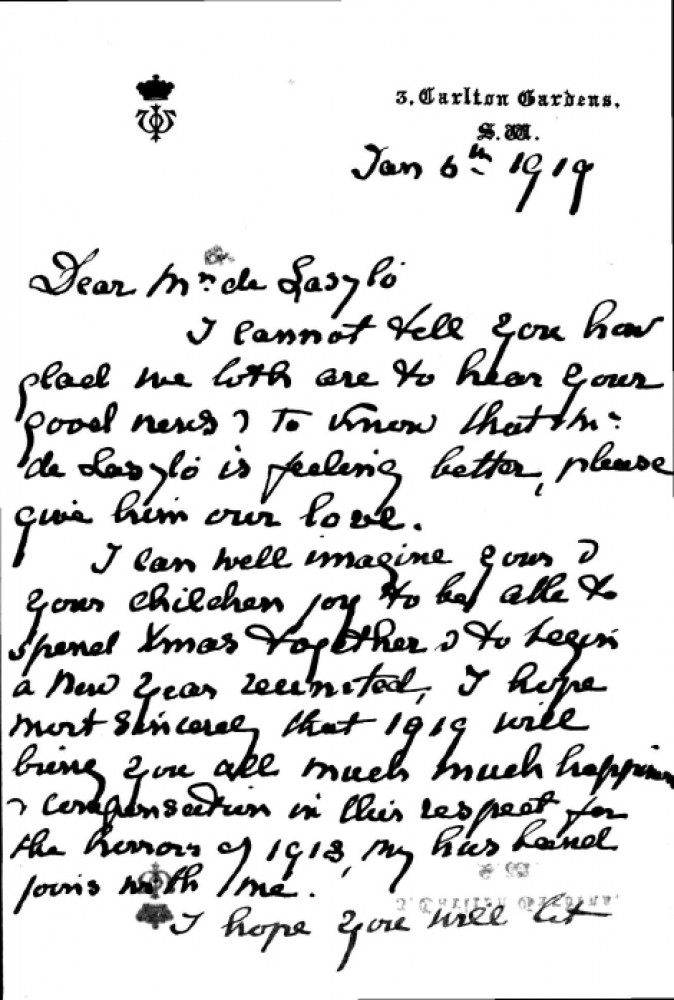 3, Carlton Gardens,
S.W.
Jan 6th 1919
Dear Mrs. de Laszló
I cannot tell you how
glad we both are to hear your
good news & to know that Mr.
de Laszló is feeling better, please
give him our love.
I can well imagine yours &
your children joy to be able to
spend Xmas together & to begin
a New Year reunited, I hope
most sincerely that 1919 will
bring you all much much happiness
& compensation in this respect for
the horrors of 1918, my husband
joins with me.
I hope you will let